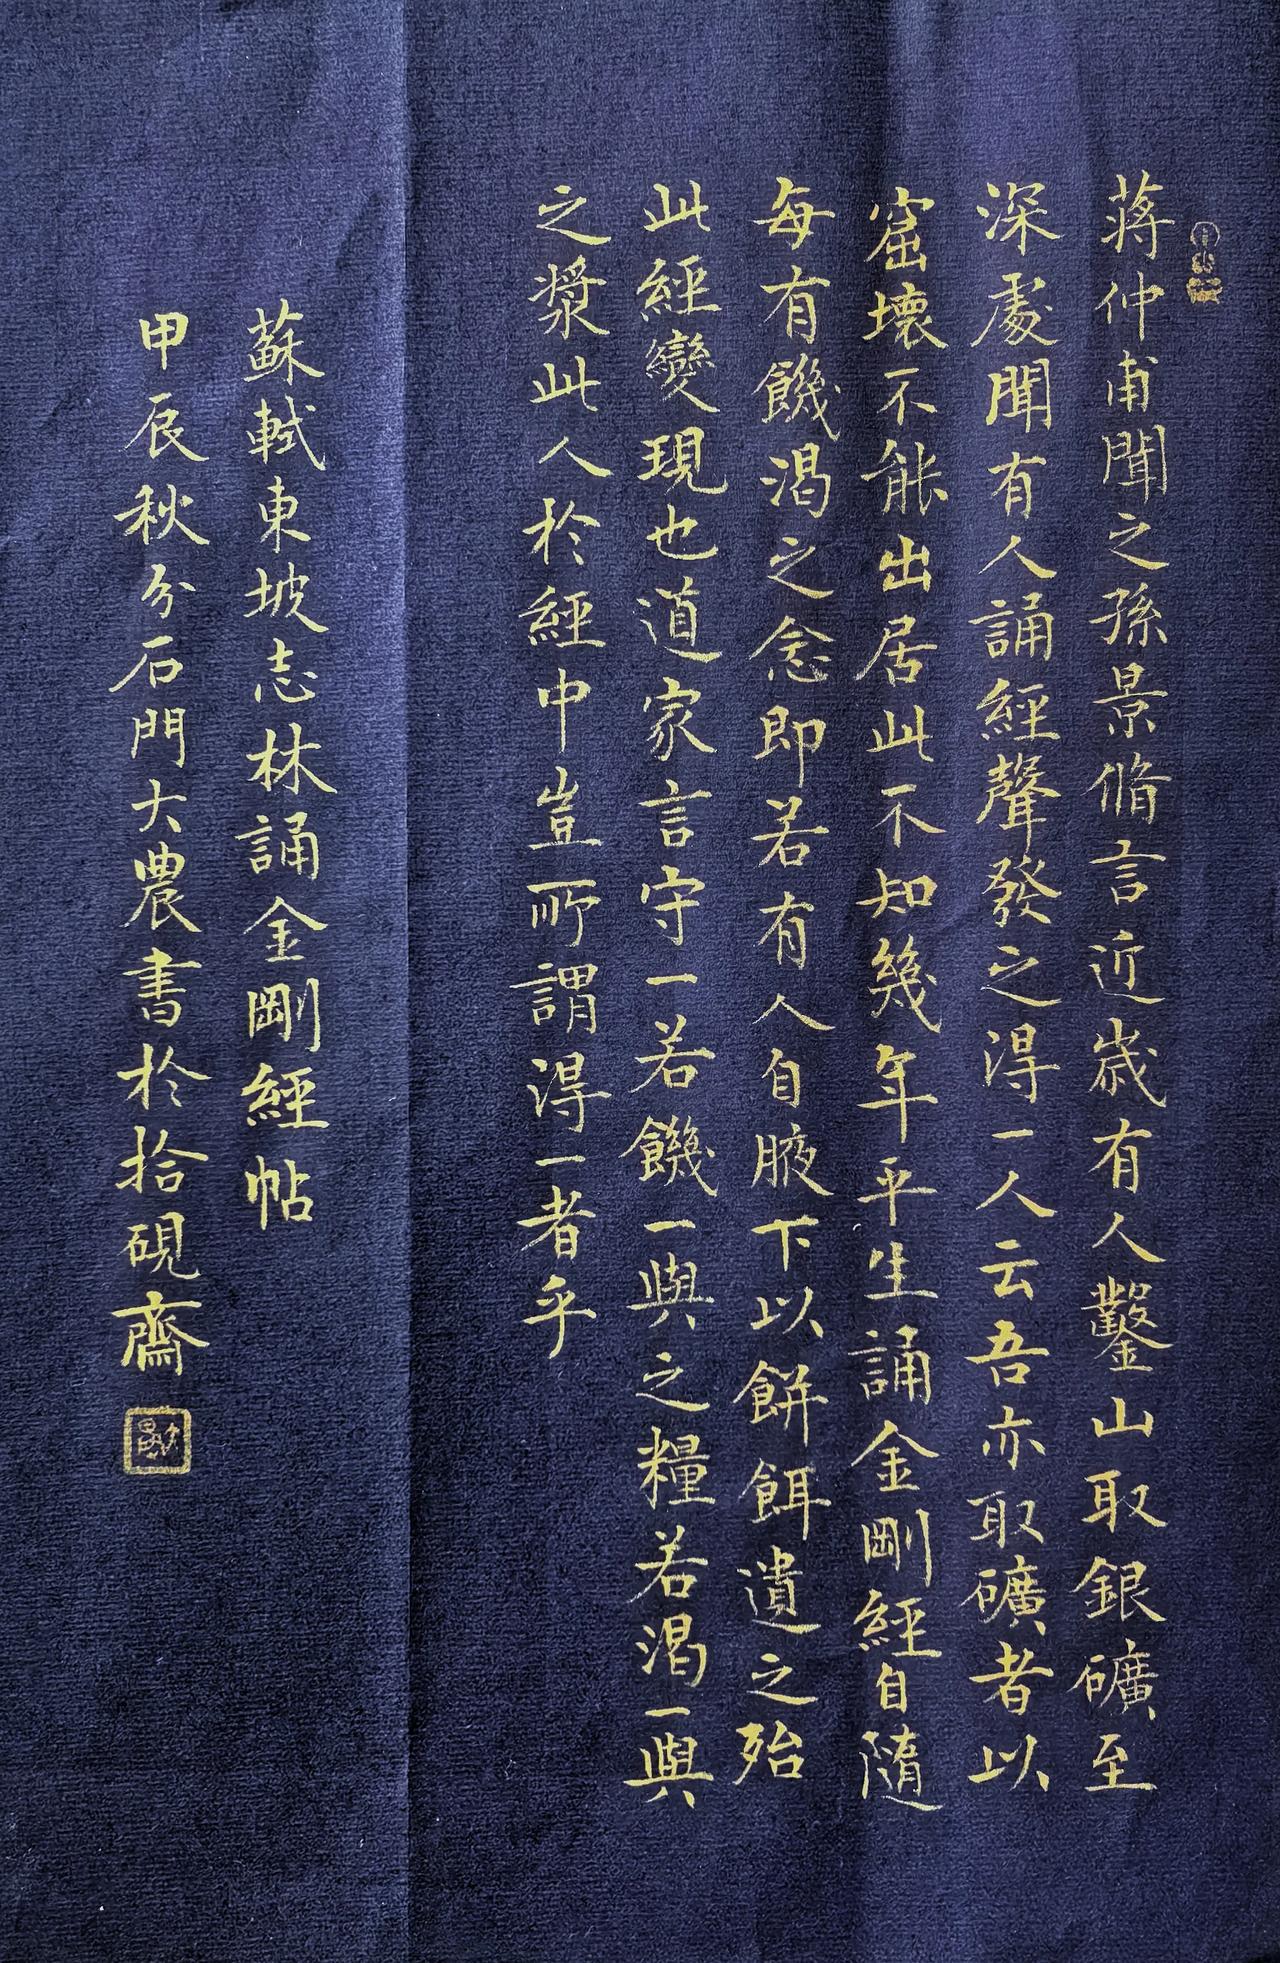 蔣仲甫聞之孫景脩言近歲有人鑿山取銀礦至
深處聞有人誦經聲發之得一人云吾亦取礦者以
窟壞不能出居此不知幾年平生誦金剛經自隨
每有饑渴之念即若有人自腋下以餅餌遺之殆
此經變現也道家言守一若饑一與之糧若渴一與
之漿此人於經中豈所謂得一者乎
蘇軾東坡志林誦金剛經帖
甲辰秋分石門大農書於拾硯齋